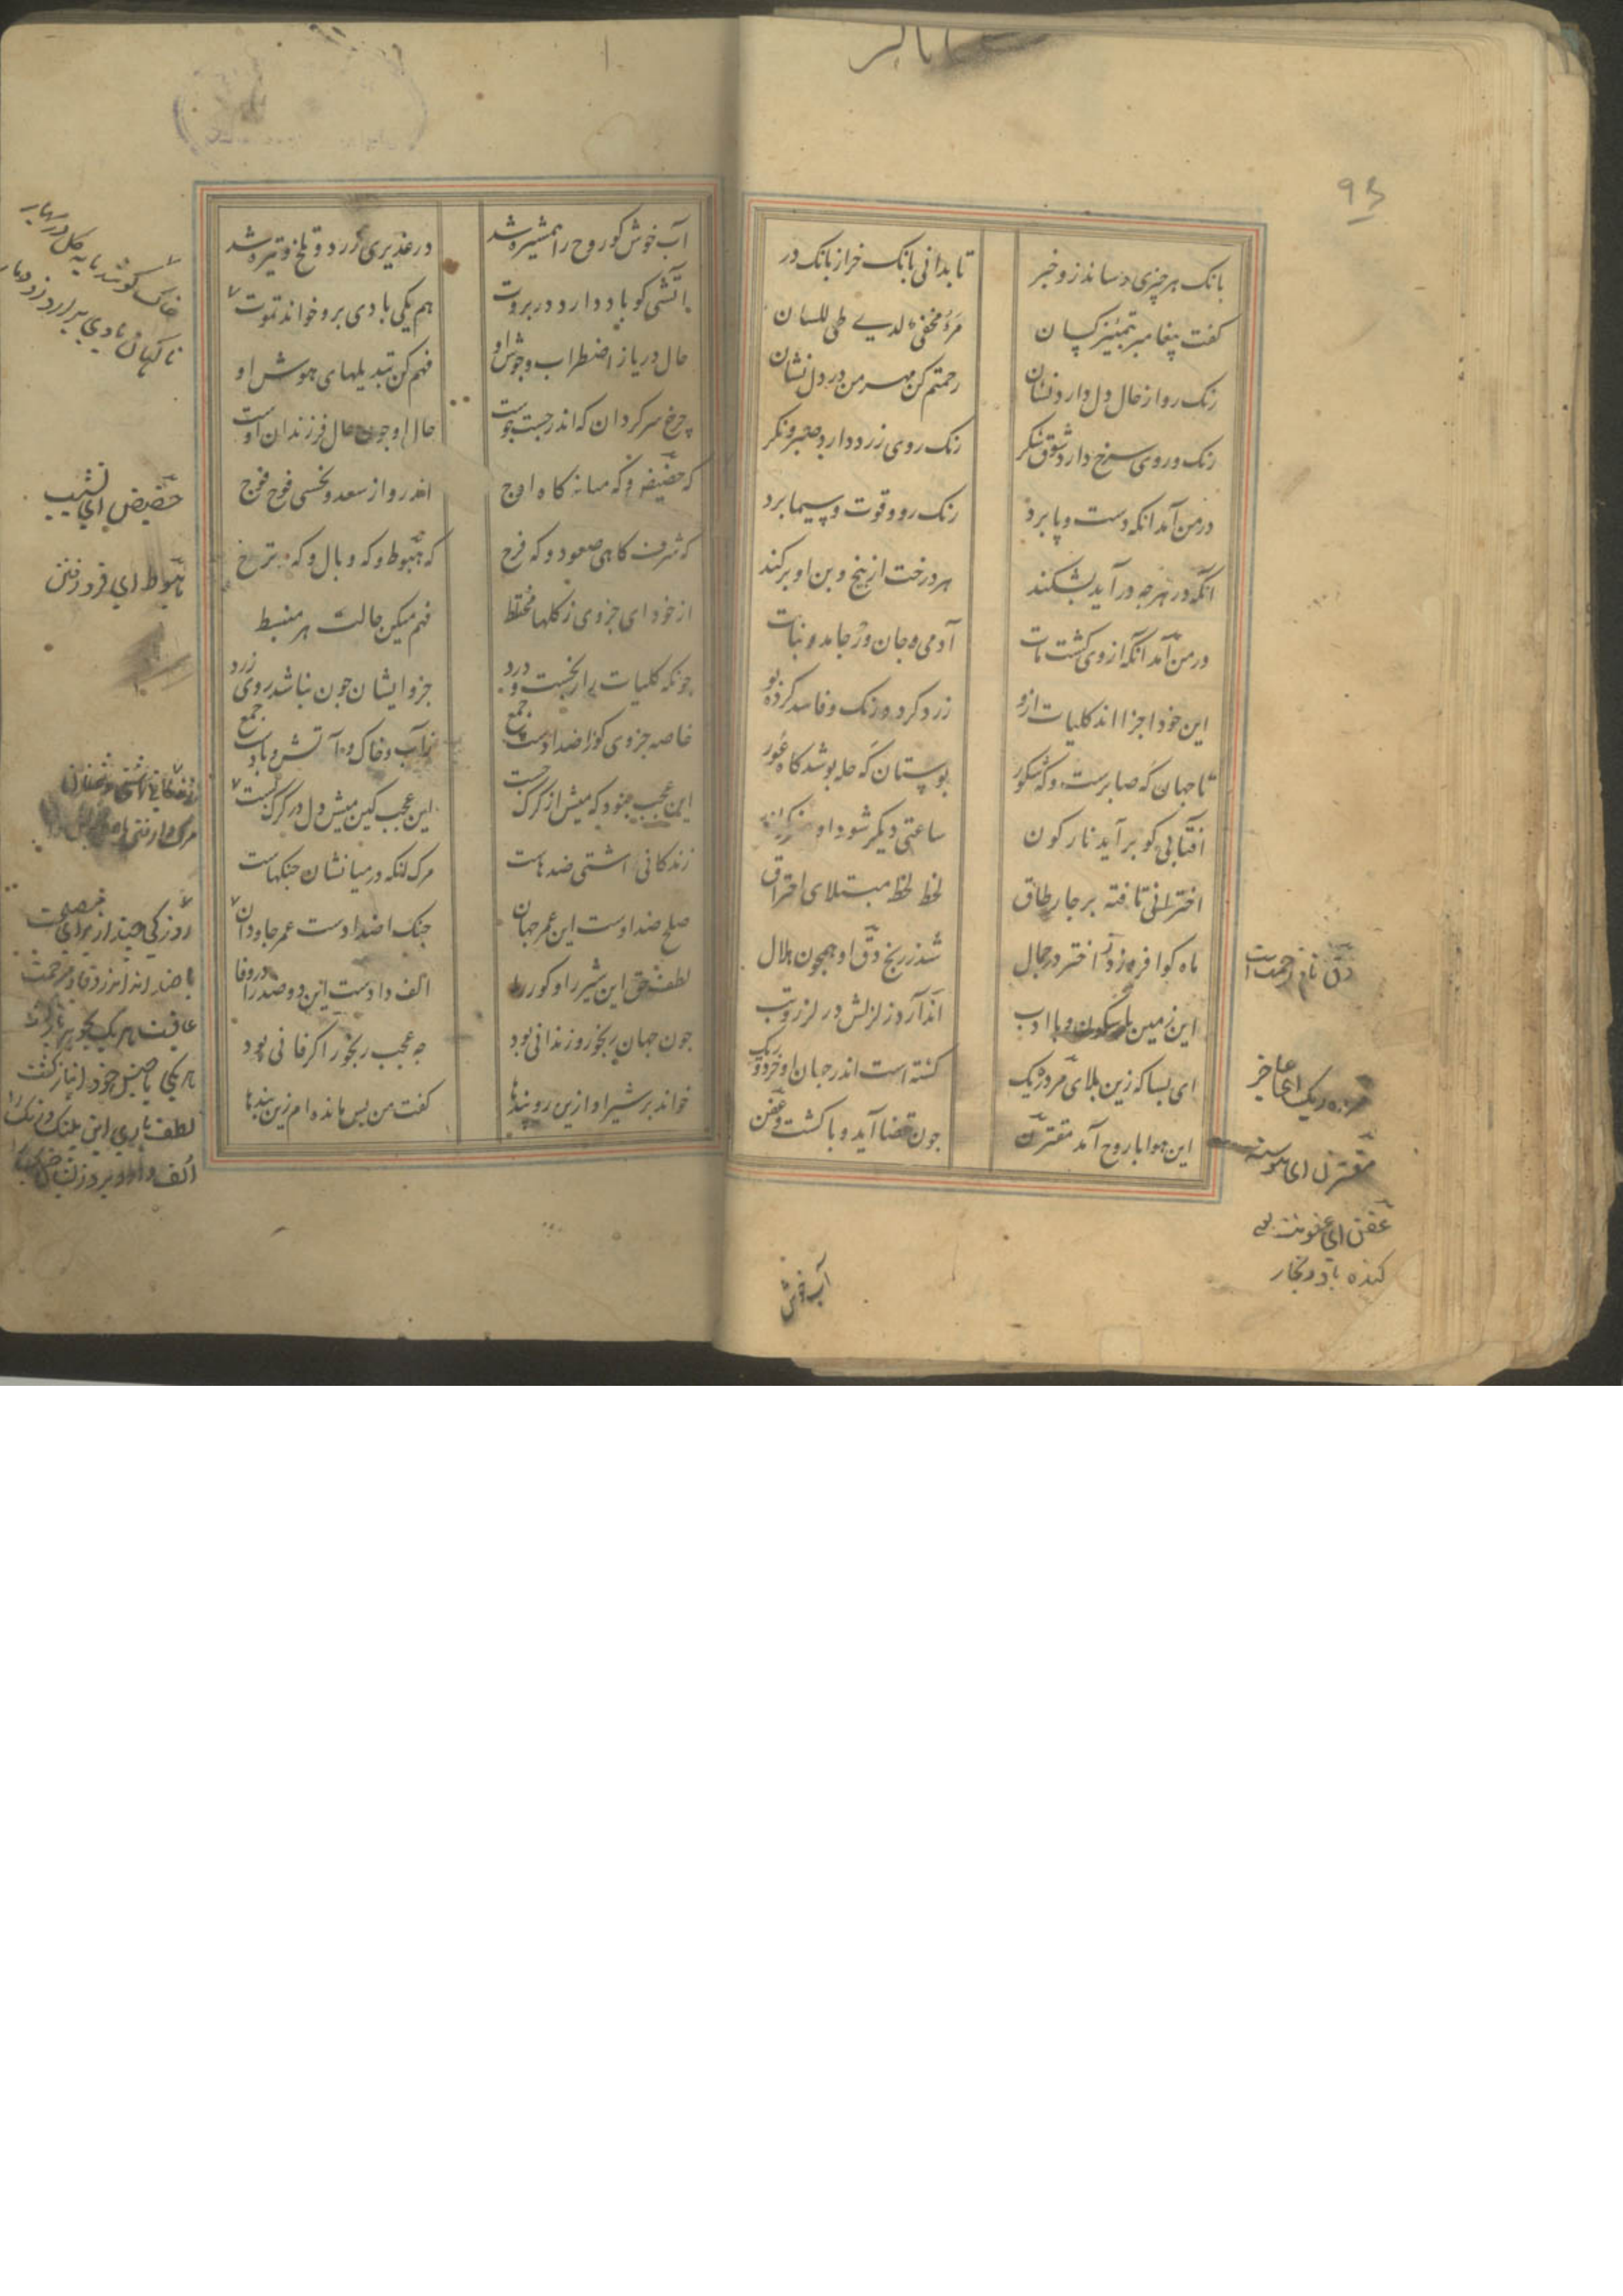 بانک هر چیزی رساند زو خبر
تا بدانی بانک خر از بانک در
کفت پیغامبر بتمییز کسان
مرء مخفی لدی طی للسان
رنک رو از حال دل دارد نشان
رحمتم کن مهر من در دل نشان
رنک وروی سرخ دارد شوق شکر
رنک روی زرد دارد صبر و نکر
در من آمد انکه دست و پا برد
رنک رو و قوت و سیما برد
انکه در هرچه در آید بشکند
هر درخت از بیخ و بن او برکند
در من آمد انکه از وی کشت مات
آدمی و جان ور جامد و نبات
این خود اجزا اند کلیات ازو
زرد کرده رنک و فاسد کرده بو
تا جهان که صابرست و که شکور
بوستان که حله پوشد کاه عور
افتابی کو برآید نارکون
ساعتی دیکر شود او
اخترانی تافته بر چارطاق
لحظ لحظ مبتلای احتراق
ماه کو افزود ز اختر در جمال
شد ز رنج دق او همچون هلال
این زمین با سکون و با ادب
اندآرد زلزلش در لرز و تب
ای بسا که زین بلای مردریک
کشته است اندر جهان او خرد و ریک
این هوا با روح آمد مقترن
چون قضا آید وبا کشت و عفن
دق نام زحمت است
مرده ریک ای عاجز
مقترن ای پیوسته
عفن ای عفونت یعنی
کنده باد و بخار
آب خوش
آب خوش کو روح را همشیره شد
در غدیری زرد و تلخ و تیره شد
آتشی کو باد دارد در بروت
هم یکی بادی برو خواند تموت
حال دریا ز اضطراب و جوش او
فهم کن تبدیلهای هوش او
چرخ سرکردان که اندر جست جوست
حال او چون حال فرزندان اوست
که حضیض و که میانه کاه اوج
اندر و از سعد و نحسی فوج فوج
که شرف کاهی صعود و که فرح
که هبوط و که وبال و که ترح
از خود ای جزوی ز کلها مختلط
فهم میکن حالت هر منبسط
چونکه کلیات را رنجست و درد
جزو ایشان چون نباشد روی زرد
خاصه جزوی کو ز اضدادست جمع
ز آب و خاک و آتش و بادست جمع
این عجب نبود که میش از کرک جست
این عجب کین میش دل در کرک بست
زندکانی اشتی ضدهاست
مرک انکه در میانشان جنکهاست
صلح ضدادست این عمر جهان
جنک اضدادست عمر جاودان
لطف حق این شیر را و کور را
الف دادست این دو ضد را در وفا
چون جهان رنجور و زندانی بود
چه عجب رنجور اکر فانی بود
خواند بر شیر او ازین رو پندها
کفت من پس مانده ام زین بندها
خاک کو شد مایه کل در بهار
ناکهان بادی برارد زو دمار
حضیض ای نشیب
هبوط ای فرود
زندکانی آشتی
روزکی چند از برای مصلحت
با ضد اندر وفا و مرحمت
عاقبت هر یک بجوهر بازکشت
هر یکی با جنس خود انباز کشت
لطف باری این پلنک و رنک را
الف داد و برد زیشان